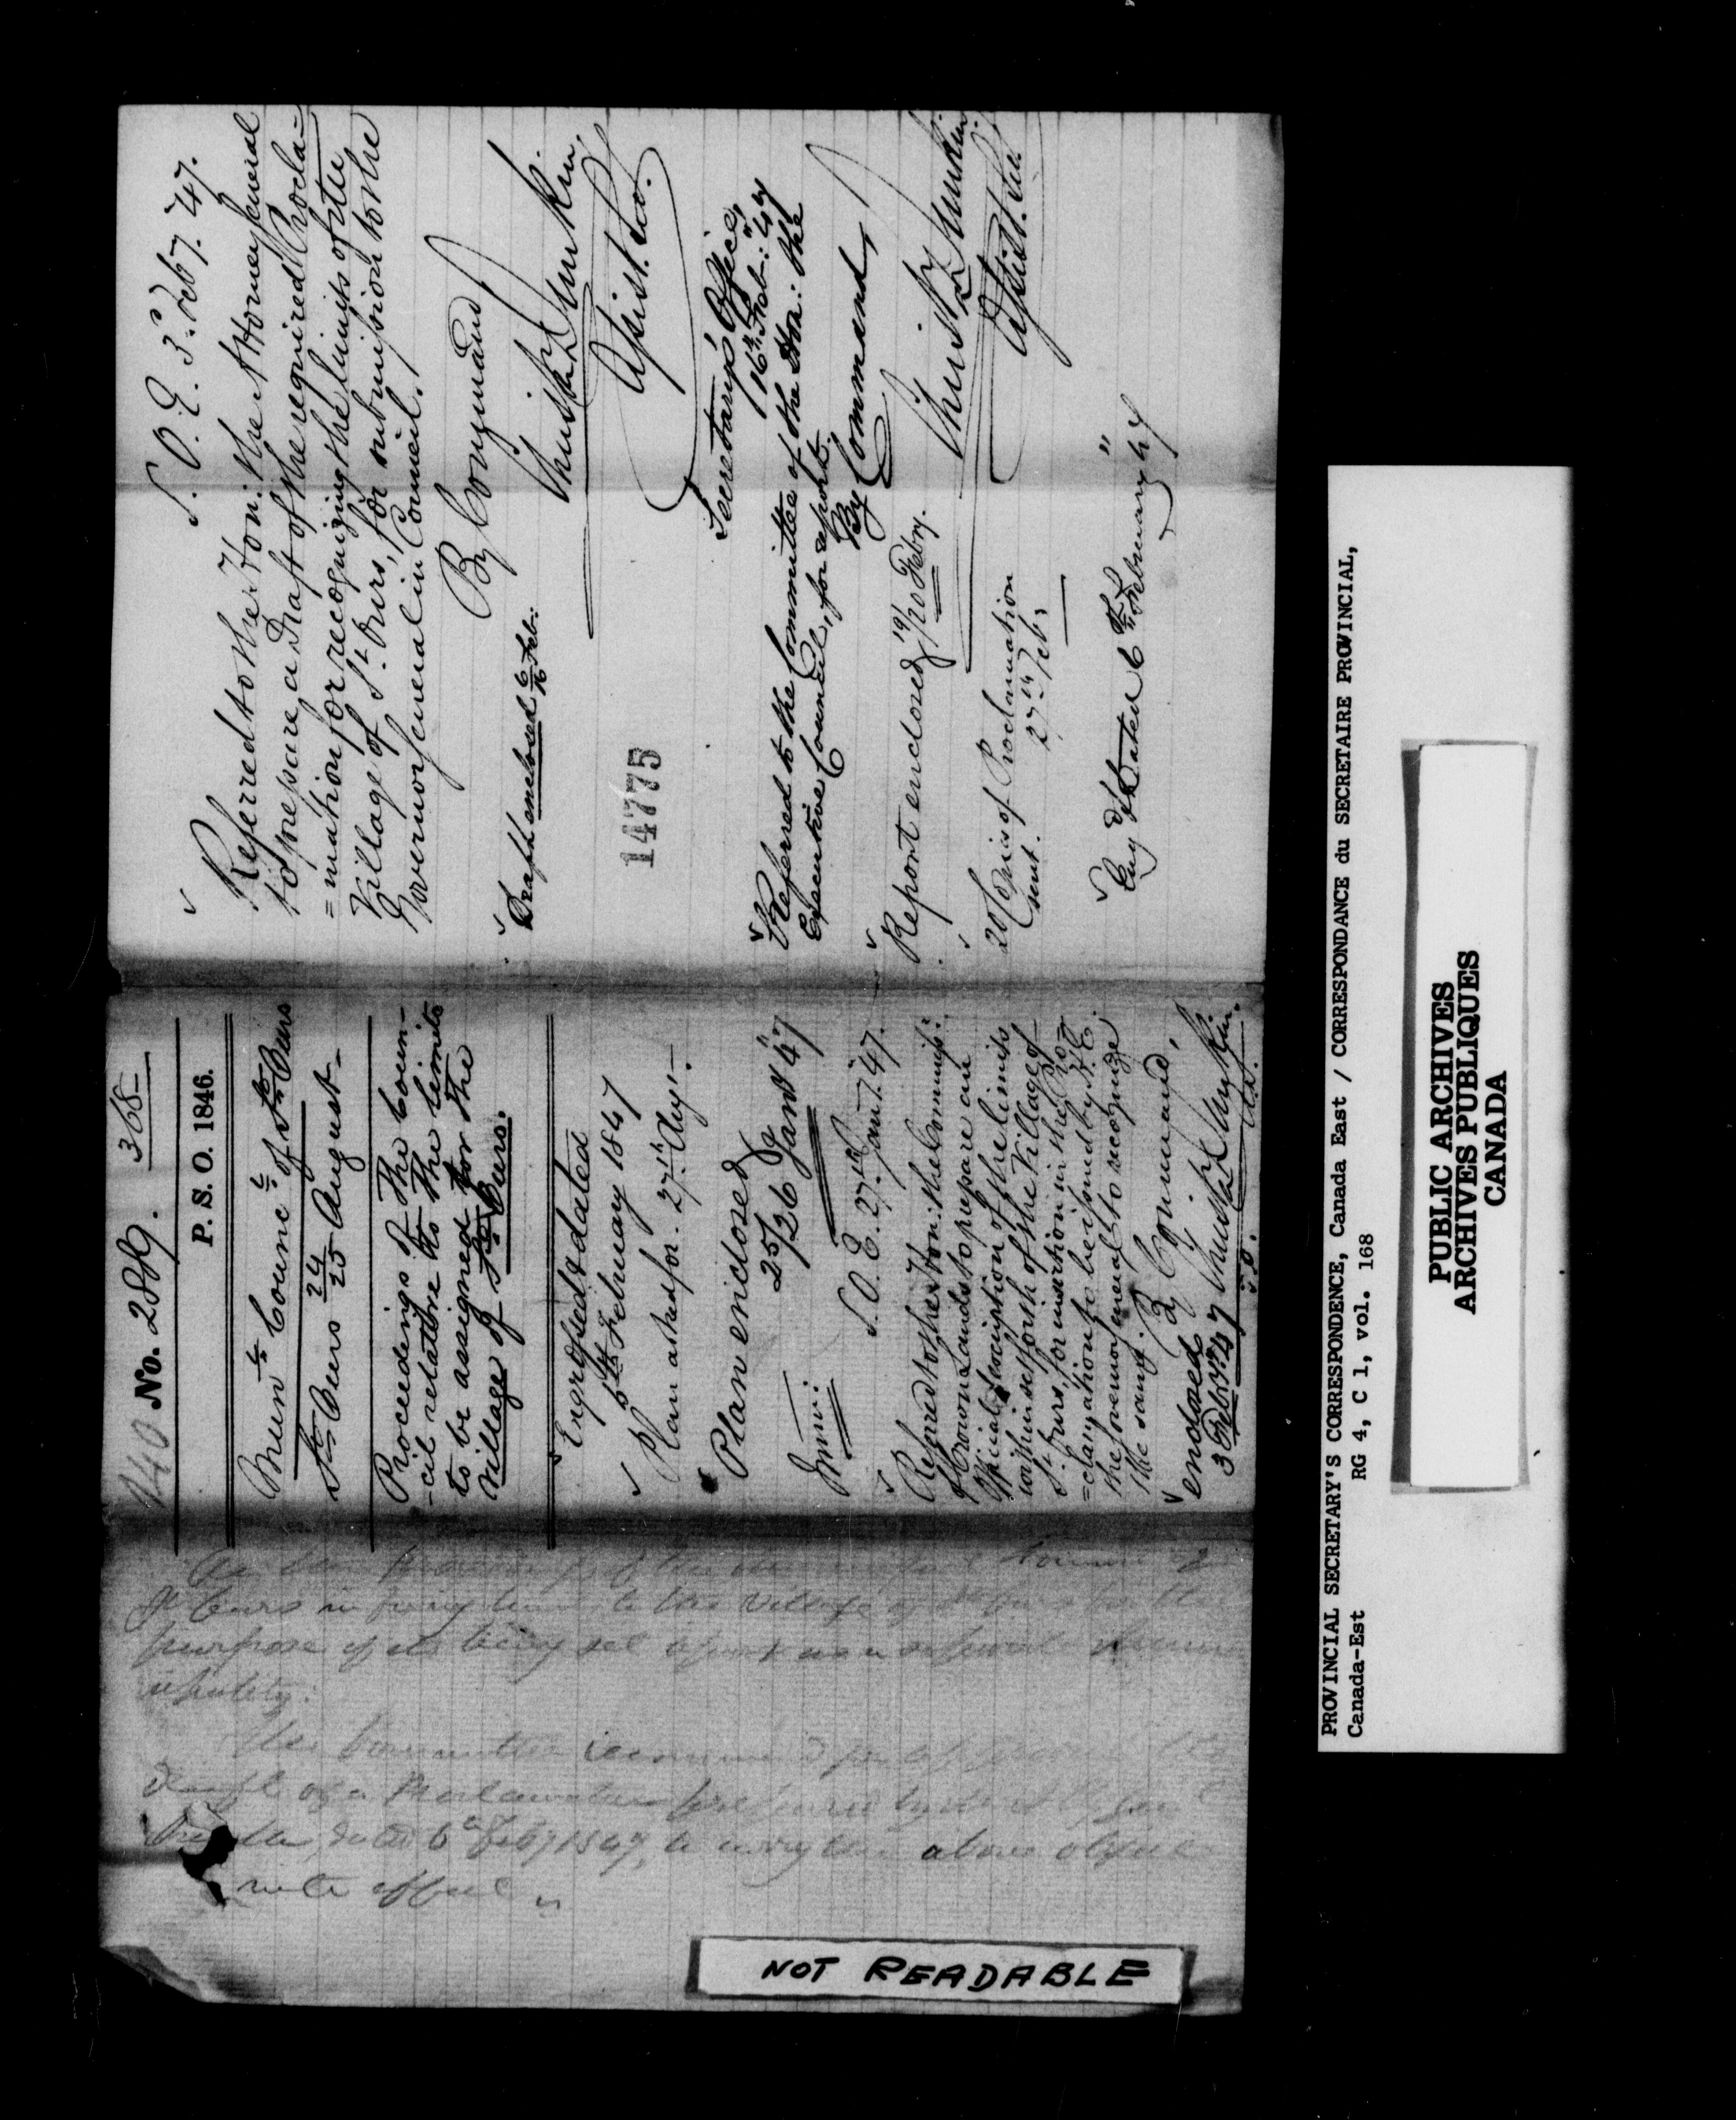 140 No. 2889. 368
P. S. O. 1846.
Munl Councl of St Ours
St Ours 24/25 August
Proceedings of the Coun-
-cil relative to the limits
to be assigned for the
Village of St Ours.
Engrossed & dated
6th February 1847
Plan asked for. 27th Augt.
Plan enclosed
25/26 Jany "47
S. O. E. 27th Jany. "47.
Referred to the Hon: the Commissr:
of Crown Lands to prepare an
Official description of the limits
within set forth of the Village of
St. Ours, for insertion in the Pro=
=clamation to be issued by H. E.
the Governor General to recognize
the same. By Command,
endosed Christn Dunkin.
3 Feby "47
S. O. E. 3. Feby. 47.
Referred to the Hon: the Attorney General
to prepare a Draft of the required Procla=
=mation for recognizing the limits of the
Village of St. Ours, for submission to the
Governor General in Council.
By Command
Christn Dunkin.
Assist. Sec.
Draft enclosed 6/16 Feb:
14775
Secretary's Office,
16th Feb: "47
Referred to the Committee of the Hon: the
Executive Council, for report.
By Command,
Christn Dunkin.
Assist. Sec.
Report enclosed 19/20 Feby.
20 Copies of Proclamation
sent. 27th Feby
Engd & Dated 6th February "47
St Ours in fixing limits to the Village of St Ours for the
purpose of its being set apart as a separate Munic
ipality:
The Committee recommend for approval the
Draft of a Proclamation prepared by
dated 6th Feby 1847, to carry the above object
into effect
NOT READABLE
PROVINCIAL SECRETARY'S CORRESPONDENCE, Canada East / CORRESPONDANCE du SECRETAIRE PROVINCIAL,
Canada-Est RG 4, C 1, vol. 168
PUBLIC ARCHIVES
ARCHIVES PUBLIQUES
CANADA